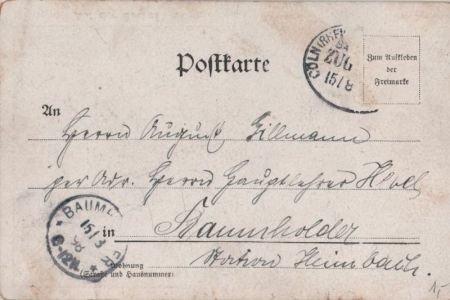 Postkarte
CÖLN
ZUG
15/8
Zum Aufkleben
der
Freimarke
An
Herrn August Tillmann
per Adr. Herrn Hauptlehrer
BAUM
15/8
98
in Baumholder
Station Heimbach.
Wohnung
(Straße und Hausnummer)